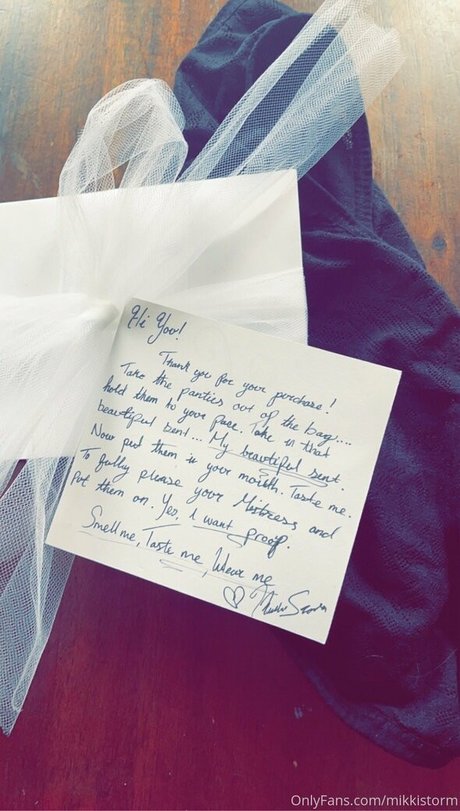 Hi You!
Thank you for your purchase!
Take the panties out of the bag....
hold them to your face. Take in that
beautiful sent... My beautiful sent.
Now put them in your mouth. Taste me.
To fully please your Mistress and
Put them on. Yes, I want proof.
Smell me, Taste me, Wear me
OnlyFans.com/mikkistorm